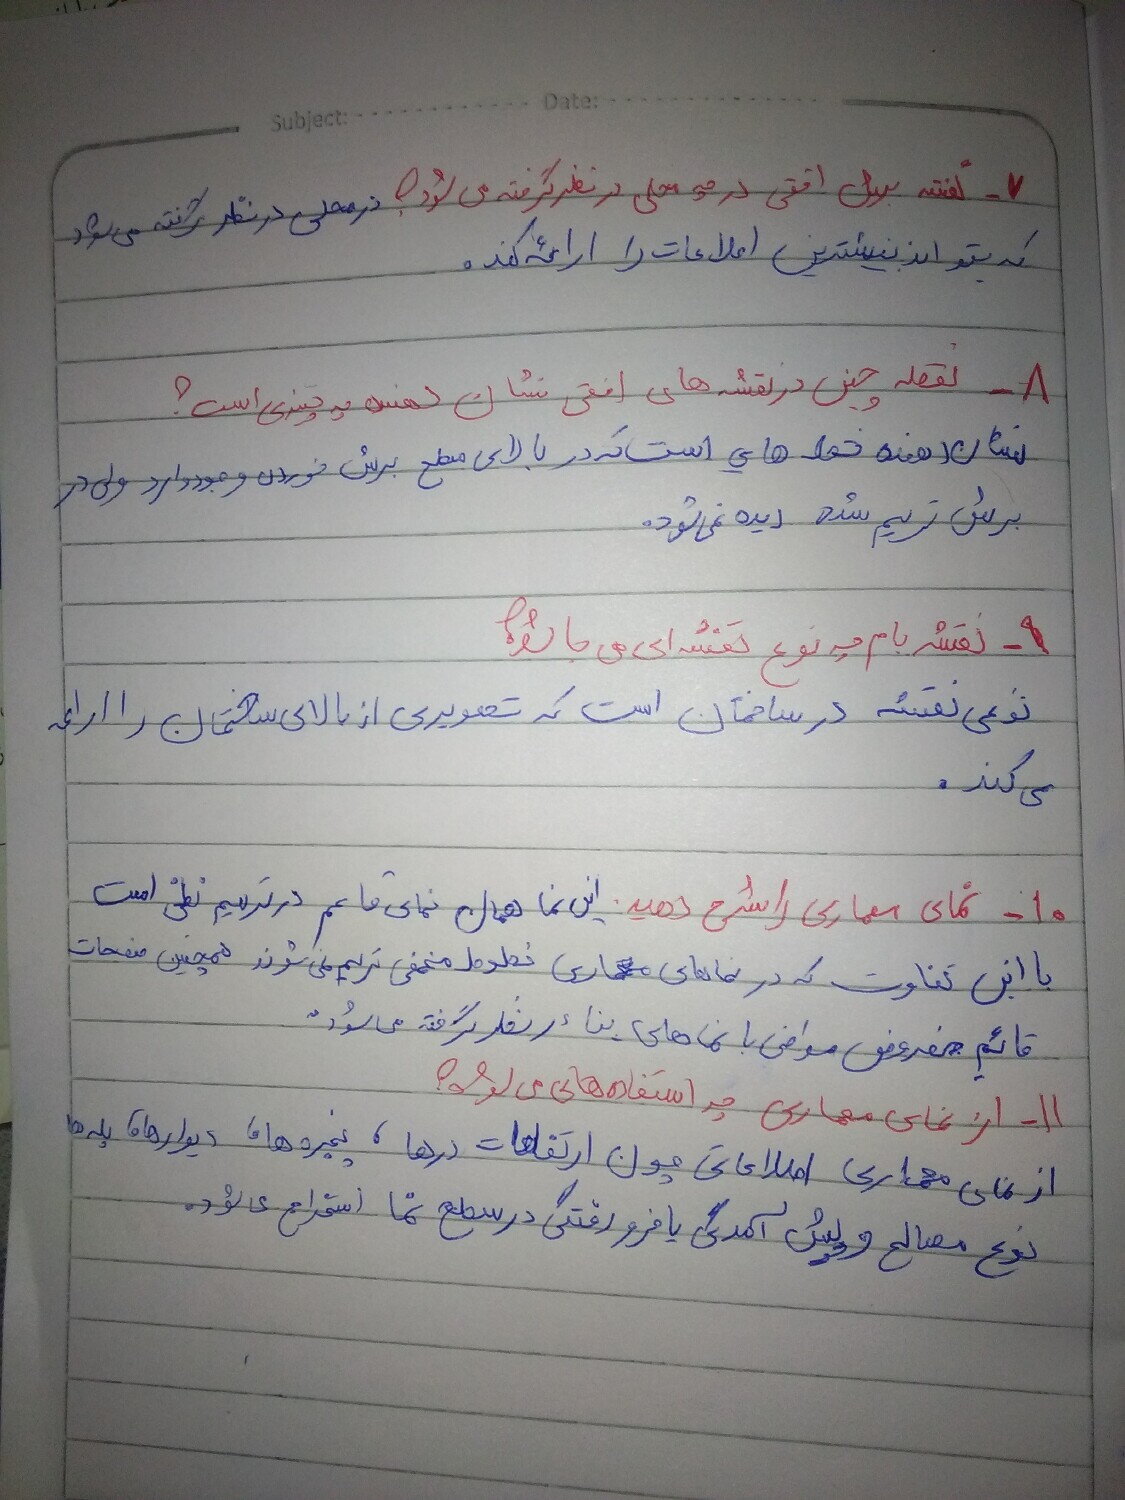 Subject: Date:
۷- نقشه برش افقی در چه محلی در نظر گرفته می شود؟ در محلی در نظر گرفته می شود
که بتواند بیشترین اطلاعات را ارائه کند.
۸- نقطه چین در نقشه های افقی نشان دهنده چه چیزی است؟
نشان دهنده خط هایی است که در بالای سطح برش خوردن وجود دارد ولی در
برش ترسیم شده دیده نمی شود.
۹- نقشه بام چه نوع نقشه ای می باشد؟
نوعی نقشه در ساختمان است که تصویری از بالای ساختمان را ارائه
می کند.
۱۰- نمای معماری را شرح دهید. این نما همان نمای قائم در ترسیم فنی است
با این تفاوت که در نماهای معماری خطوط مخفی ترسیم نمی شوند همچنین صفحات
قائم مفروض موازی با نماهای بنا در نظر گرفته می شود.
۱۱- از نمای معماری چه استفاده هایی می شود؟
از نمای معماری اطلاعاتی چون ارتفاعات درها، پنجره ها، دیوارها، پله ها
نوع مصالح و پیش آمدگی یا فرو رفتگی در سطح نما استخراج می شود.